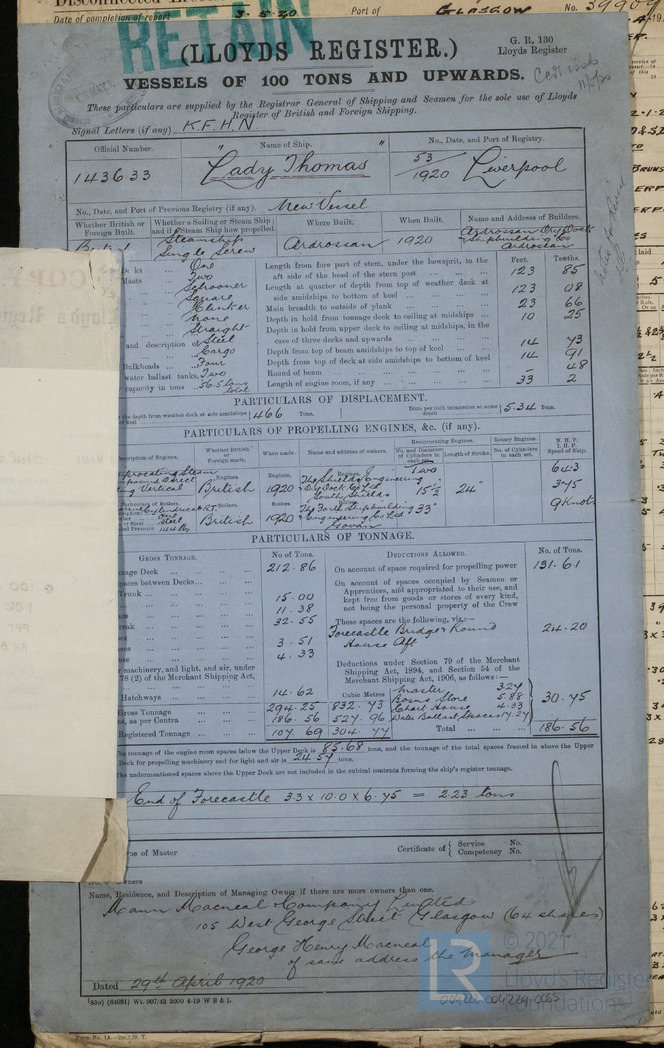 Date of completion of report 3.5.20 Port of GLASGOW No.
RETAIN
(LLOYDS REGISTER.)
G. R. 130
Lloyds Register
VESSELS OF 100 TONS AND UPWARDS.
These particulars are supplied by the Registrar General of Shipping and Seamen for the sole use of Lloyds
Register of British and Foreign Shipping.
Signal Letters (if any) K.F.H.N.
Official Number. Name of Ship. No., Date, and Port of Registry.
143633 "Lady Thomas" 53/1920 Liverpool
No., Date, and Port of Previous Registry (if any). New Vessel
Whether British or Foreign Built. Whether a Sailing or Steam Ship; and if Steam Ship how propelled. Where Built. When Built. Name and Address of Builders.
Steamship Single Screw Ardrossan 1920 Ardrossan Dry Dock & Shipbuilding Co Ardrossan
Feet. Tenths.
One
Two
Schooner
Square
Clinker
None
Straight
and description of Steel
Cargo
Bulkheads Four
water ballast tanks, Two
capacity in tons 56.5 tons total
Length from fore part of stem, under the bowsprit, to the
aft side of the head of the stern post 123 85
Length at quarter of depth from top of weather deck at
side amidships to bottom of keel 123 08
Main breadth to outside of plank 23 66
Depth in hold from tonnage deck to ceiling at midships 10 25
Depth in hold from upper deck to ceiling at midships, in the
case of three decks and upwards
Depth from top of beam amidships to top of keel 14 73
Depth from top of deck at side amidships to bottom of keel 14 91
Round of beam - 48
Length of engine room, if any 33 2
PARTICULARS OF DISPLACEMENT.
the depth from weather deck at side amidships 466 Tons. Ditto per inch immersion at same depth 5.34 Tons.
PARTICULARS OF PROPELLING ENGINES, &c. (if any).
Description of Engines. Whether British or Foreign made. When made. Name and address of makers. Reciprocating Engines. Rotary Engines. N. H. P. I. H. P. Speed of Ship.
No. and Diameter of Cylinders in each set. Length of Stroke. No. of Cylinders in each set.
Engines. British Engines. 1920 Engines. The Shields Engineering & Dry Dock Co Ltd South Shields Two 15½" 33" 24"
Boilers. British Boilers 1920 The Forth Shipbuilding & Engineering Co Ltd
375
9 Knots
PARTICULARS OF TONNAGE.
GROSS TONNAGE. No of Tons. DEDUCTIONS ALLOWED. No. of Tons.
nage Deck 212.86
paces between Decks
Trunk 15.00
11.38
32.55
3.51
4.33
machinery, and light, and air, under
78 (2) of the Merchant Shipping Act,
Hatchways 14.62
Cubic Metres
Gross Tonnage 294.25 832.73
ns, as per Contra 186.56 527.96
Registered Tonnage 107.69 304.77
On account of space required for propelling power 131.61
On account of spaces occupied by Seamen or
Apprentices, and appropriated to their use, and
kept free from goods or stores of every kind,
not being the personal property of the Crew
These spaces are the following, viz.:—
Forecastle Bridge & Round
House Aft 24.20
Deductions under Section 79 of the Merchant
Shipping Act, 1894, and Section 54 of the
Merchant Shipping Act, 1906, as follows:—
Master 3.27
Bosns Store 5.88
Chart House 4.33
Water Ballast Spaces 17.27
30.75
Total 186.56
the tonnage of the engine room spaces below the Upper Deck is 85.68 tons, and the tonnage of the total spaces framed in above the Upper
Deck for propelling machinery and for light and air is 24.57 tons.
The undermentioned spaces above the Upper Deck are not included in the cubical contents forming the ship's register tonnage.
End of Forecastle 33 x 10.0 x 6.75 = 2.23 tons
me of Master
Certificate of { Service No.
Competency No.
No. of Owners
Name, Residence, and Description of Managing Owner if there are more owners than one.
Mann Macneal & Company Limited
105 West George Street Glasgow (64 shares)
George Henry Macneal
of same address the manager
Dated 29th April 1920
(83o) (64091) Wt. 997/43 2000 4-19 W B & L
LR © 2021
Lloyd's Register
Foundation
Form No. 1A